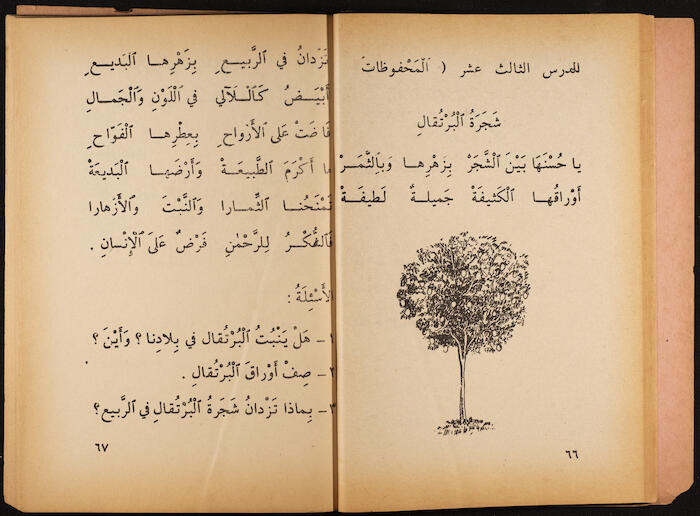 الدرس الثالث عشر ( اَلْمَحْفوظات
شَجَرَةُ اَلْبُرْتُقالِ
يا حُسْنَهَا بَيْنَ اَلشَّجَرْ بِزَهْرِهـا وَبـاِلثَّمَـرْ
أَوْراقُهـا اَلْكَثيفَةْ جَميلـةٌ لَطيفَـةْ
٦٦
تَزْدانُ في اَلرَّبيعِ بِزَهْرِهـا اَلْبَديـعِ
أَبْيَـضُ كَاَللَّآلي في اَللَّوْنِ وَاَلْجَمـالِ
فَاضَتْ عَلى اَلْأَرْواحِ بِعِطْرِهـا اَلْفَوّاحِ
ما أَكْرَمَ اَلطَّبيعَـةْ وَأَرْضَهـا اَلْبَديعَةْ
تَمْنَحُنـا اَلثِّمـارا وَاَلنَّبْتَ وَاَلْأَزْهارا
فَالشُّكْـرُ لِلرَّحْمٰنِ فَرْضٌ عَلىَ اَلْإِنْسانِ .
اَلْأَسْئِلَةُ :
١ – هَلْ يَنْبُتُ اَلْبُرْتُقال في بِلادِنا ؟ وَأَيْنَ ؟
٢ – صِفْ أَوْراقَ اَلْبُرْتُقالِ .
٣ – بِماذا تَزْدانُ شَجَرَةُ اَلْبُرْتُقالِ في اَلرَّبيعِ ؟
٦٧